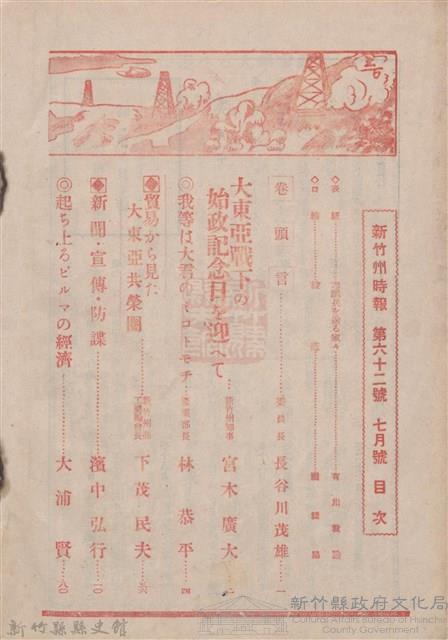 新竹州時報 第六十二號 七月號 目次
卷頭言 委員長 長谷川茂雄 一
大東亞戰下の
始政記念日を迎へて 新竹州知事 宮木廣大 二
◎我等は大君のミコトモチ 林恭平 四
◆貿易から見た
大東亞共榮圈 下茂民夫 六
◆新聞・宣傳・防諜 濱中弘行 一〇
◎起ち上るビルマの經濟 大浦賢 八〇
新竹縣縣史館
新竹縣政府文化局
Cultural Affairs Bureau of Hsinchu
County Government